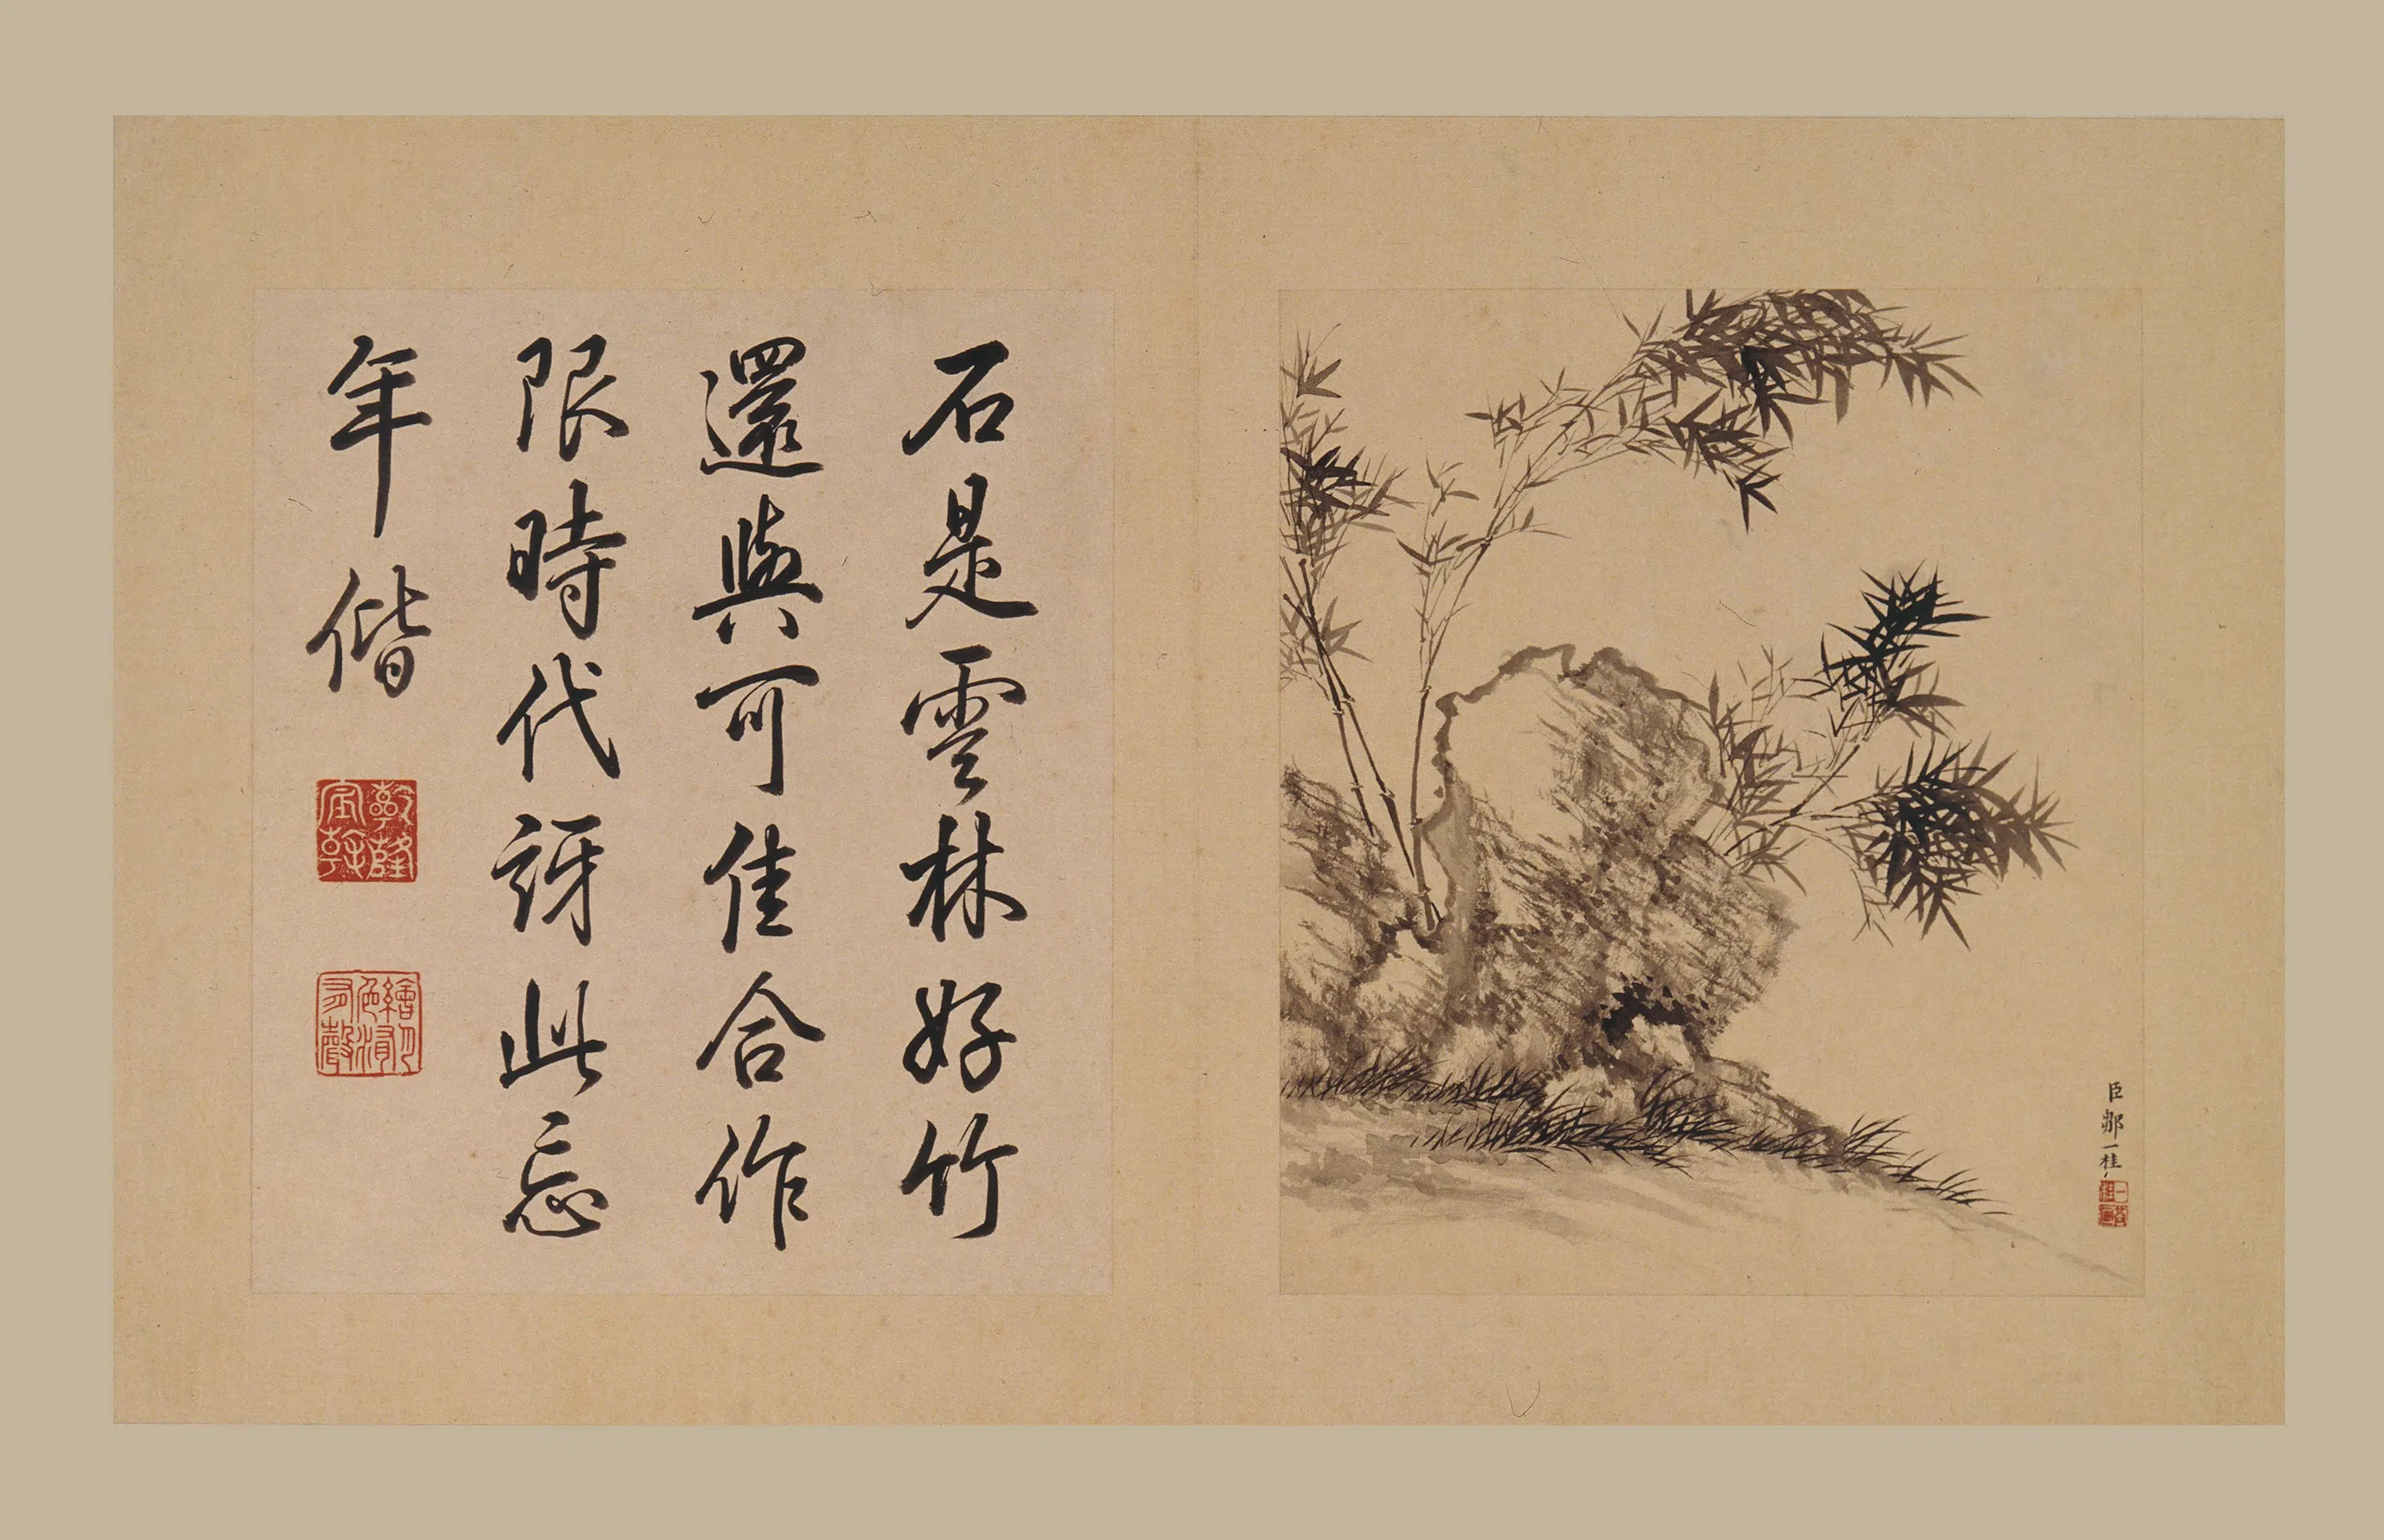 臣鄒一桂
石是雲林好竹
還與可佳合作
限時代訝此忘
年偕
乾隆宸翰
繪月有色水有聲